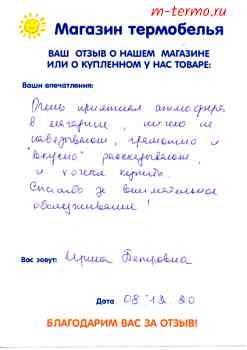 m-termo.ru
Магазин термобелья
ВАШ ОТЗЫВ О НАШЕМ МАГАЗИНЕ
ИЛИ О КУПЛЕННОМ У НАС ТОВАРЕ:
Ваши впечатления:
Очень приятная атмосфера
в магазине, ничего не
навязывают, грамотно и
"вкусно" рассказывают,
и хочется купить.
Спасибо за внимательное
обслуживание!
Вас зовут: Ирина Петровна
Дата 08 12. 20
БЛАГОДАРИМ ВАС ЗА ОТЗЫВ!